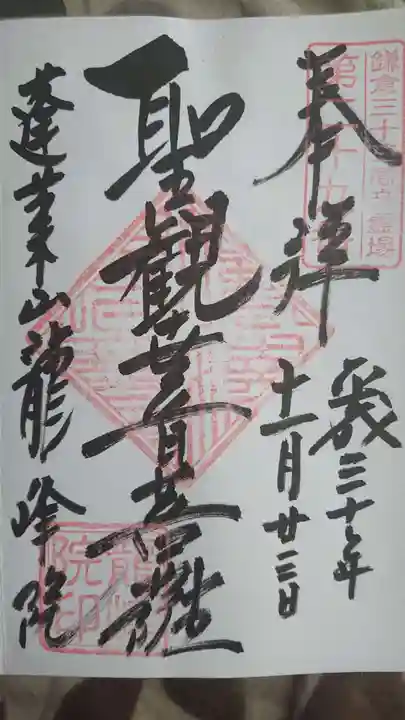 鎌倉三十三
第二十九
奉拝
平成三十年
十一月廿三日
聖観世音菩薩
蓬莱山龍峰院
龍峰院印